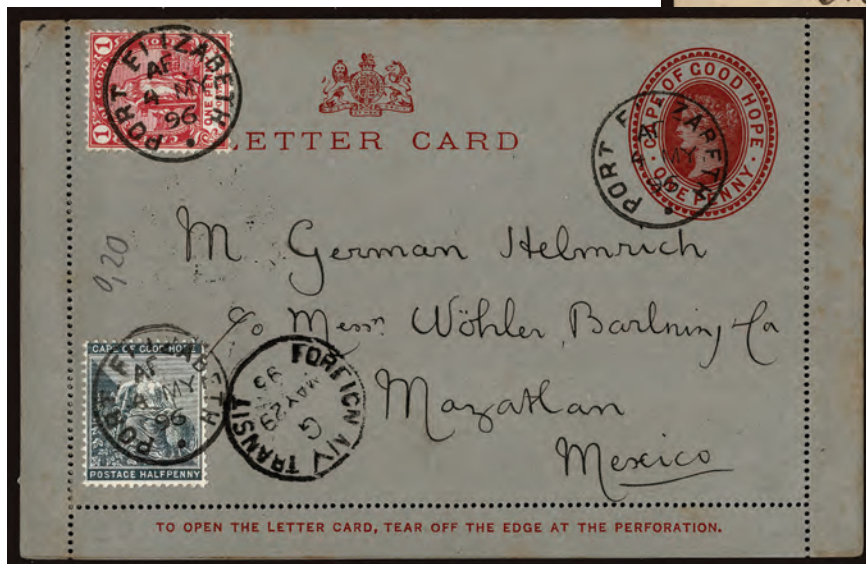 GOOD HOPE
1 1
ONE PENNY
PORT ELIZABETH
AF
4 MY
96
LETTER CARD
CAPE OF GOOD HOPE
ONE PENNY
PORT ELIZABETH
MY
96
M German Helmrich
c/o Messrs Wöhler, Bartning & Co
Mazatlan
Mexico
0,20
CAPE OF GOOD HOPE
POSTAGE HALFPENNY
PORT ELIZABETH
AF
4 MY
96
FOREIGN
G
MAY 29
96
N/Y TRANSIT
TO OPEN THE LETTER CARD, TEAR OFF THE EDGE AT THE PERFORATION.